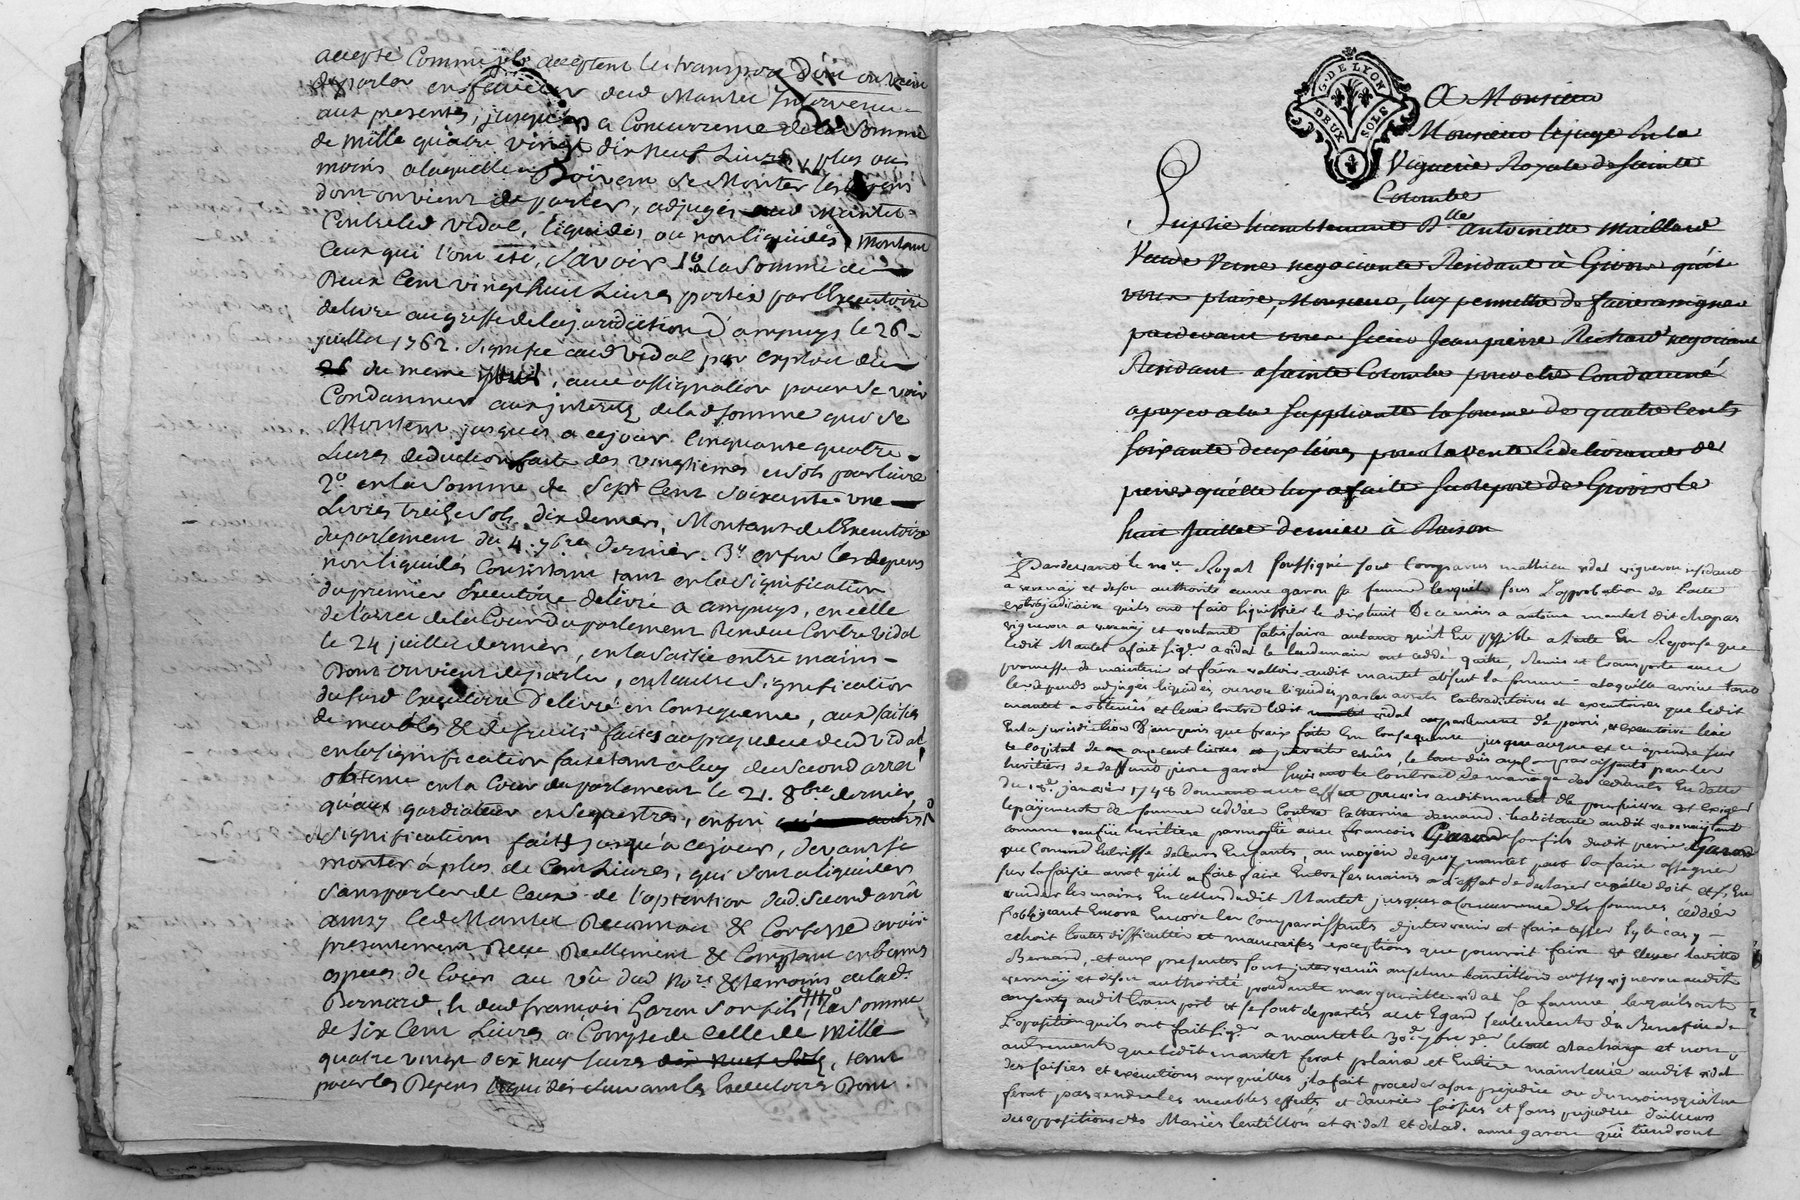 accepté Comme ils acceptent le transport dont on vient
de parler en faveur dud Mantel Intervenu
aux presentes, jusques a Concurrence de la Somme
de mille quatre vingt dix neuf Livres, plus ou
moins a laquelle doivent se Monter les depens
dont on vient de parler, adjugés aud Mantel
Contre led vidal, liquidés ou non liquidés, montant
Ceux qui l'ont été, Savoir 1º a la Somme de
Deux Cent vingt huit Livres portée par l'Executoire
delivré au greffe de la jurisdiction d'ampuys le 26
juillet 1762. Signifié aud vidal par exploit du
26 du meme, avec assignation pour se voir
Condamner aux interetz de lad somme qui se
Montent jusques a ce jour Cinquante quatre
Livres deduction faite des vingtiemes en sols pour livre
2º en la Somme de Sept Cent Soixante une
Livres treize Sols dix deniers, Montant de l'Executoire
du parlement du 4. 7bre dernier. 3º enfin les depens
non liquidés Consistant tant en la Signification
du premier Executoire delivré a ampuys, en celle
de l'arret de la Cour du parlement Rendu Contre vidal
le 24 juillet dernier, en la saisie entre mains
Dont on vient de parler, en l'autre Signification
du Executoire Delivré en Consequence, aux saisies
de meubles & de fruits faites au prejudice dud vidal
en la signification faite tant a luy du second arret
obtenu en la Cour du parlement le 21. 8bre dernier,
qu'aux gardiateurs et Sequestres, enfin
Significations faites jusqu'à ce jour, devant se
monter à plus de Cent Livres, qui sont a liquider
Sans parler de Ceux de l'obtention dud. Second arrêt
ainsy led Mantel Reconnait & Confesse avoir
presentement Reçu Reellement & Comptant en bonnes
especes de Cours au vû dud Nore & temoins de lad.
Bernard, & dud françois Garon Son fils, la Somme
de Six Cent Livres a Compte de Celle de Mille
quatre vingt dix neuf livres dix neuf sols, tant
pour les Depens liquidés suivant les Executoires Dont
G. DE LYON
DEUX SOLS
A Monsieur
Monsieur le juge En la
Viguerie Royale de Sainte
Colombe
Suplie humblement Dlle antoinette Maillard
Veuve Verne negociante Residant à Givors qu'il
vous plaise, Monsieur, luy permettre de faire assigner
pardevant vous Sieur Jean pierre Richard negociant
Residant a Sainte Colombe pour etre Condamné
a payer a la Suppliante la Somme de quatre Cents
Soixante deux livres pour la vente & delivrance de
qu'elle luy a faite Sur le port de Givors le
huit Juillet dernier à Raison
Pardevant le nore Royal soussigné sont Comparus mathieu vidal vigneron residant
a verenay et de son authorité anne garon sa femme lesquels sous L'approbation de L'acte
extrajudiciaire qu'ils ont fait signiffier le dixhuit De ce mois a antoine mantel dit chapas
vigneron a verenay et voulant satisfaire autant qu'il Est possible a In Reponse que
ledit Mantel a fait sigr a vidal le lendemain ont ceddé quitté, Remis et transporté avec
promesse de maintenir et faire valloir audit mantel absent la somme a laquelle arrive tant
les depends adjugés liquidés ou non liquides par les arrets contradictoires et executoires que ledit
mantel a obtenus et levé contre ledit vidal au parlement de paris, et executoire levé
En la jurisdiction D'ampuis que frais faits En consequence jusques aujour et ce a prendre sur
le capital de onze cent livres et interets echûs, le tout dûs aux comparaissants par les
heritiers de deffunt pierre garon suivant le contrat de mariage des cedants En datte
du 18e janvier 1748 donnant aud effet pouvoir audit mantel de poursuivre et exiger
le payement de somme ceddée contre Catherine bernard habitante audit verenay tant
comme heritiere par moitié avec francois Garon son fils dudit pierre Garon
que Comme tutrisse de leurs Enfants, au moyen de quoy mantel peut la faire assigner
sur la saisie arret qu'il a fait faire Entre ses mains a l'effet de declarer ce qu'elle doit et s'En
vuider les mains En celles dudit Mantel jusques a Concurrence des sommes ceddées
s'obligeant Encore Encore les comparaissants d'intervenir et faire cesser sy le cas y
echoit toutes difficultés et mauvaises exceptions que pourroit faire et elever laditte
Bernard, et aux presentes sont intervenûs anselme lentillon aussy vigneron audit
verenay et de son authorité procedante margueritte vidal sa femme lesquels ont
consenty audit transport et se sont departis a cet Egard seulement du Benefice de
L'opposition qu'ils ont fait sigr a mantel le 30e 7bre der attachant et non
autrement que ledit mantel ferat plaine et Entiere mainlevée audit vidal
des saisies et executions auxquelles il a fait proceder a son prejudice ou du moins qu'il lui
ferat pas rendre les meubles effets et danrées saisies et sans prejudice d'ailleurs
des oppositions des Mariés lentillon et vidal et de lad. anne garon qui tiendront